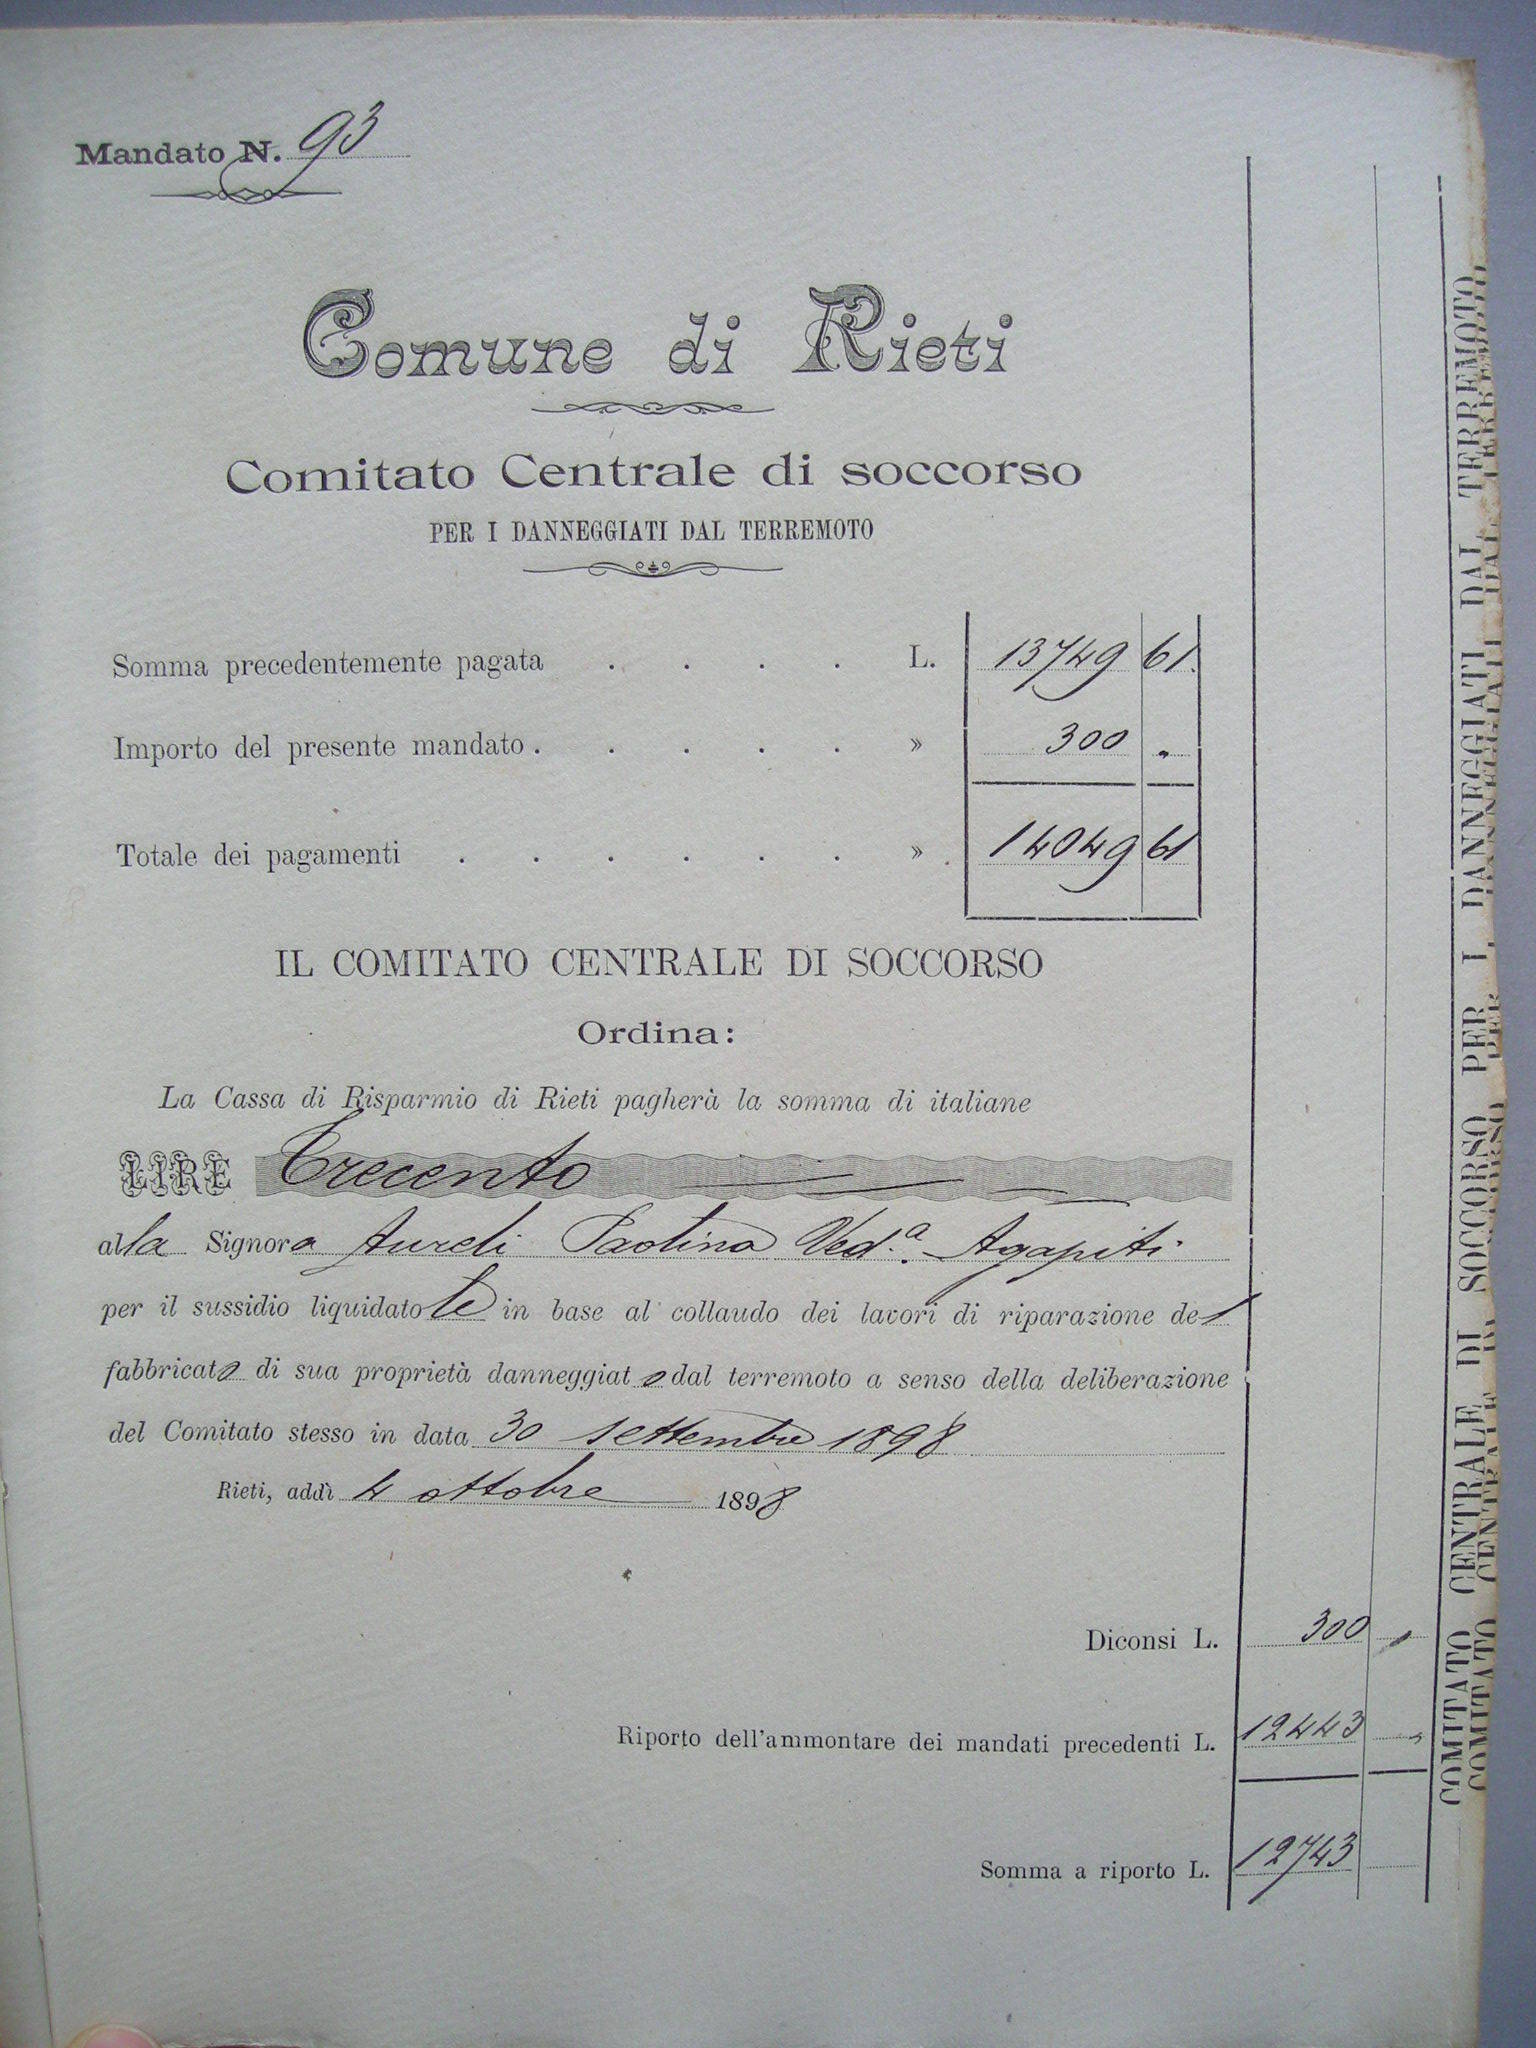 Mandato N. 93
Comune di Rieti
Comitato Centrale di soccorso
PER I DANNEGGIATI DAL TERREMOTO
Somma precedentemente pagata . . . . L. 13749 61.
Importo del presente mandato . . . . . » 300 „
Totale dei pagamenti . . . . . . » 14049 61
IL COMITATO CENTRALE DI SOCCORSO
Ordina:
La Cassa di Risparmio di Rieti pagherà la somma di italiane
LIRE Trecento
alla Signora Aureli Paolina Ved.ª Agapiti
per il sussidio liquidatole in base al collaudo dei lavori di riparazione del
fabbricato di sua proprietà danneggiato dal terremoto a senso della deliberazione
del Comitato stesso in data 30 settembre 1898
Rieti, addì 4 ottobre 1898
Diconsi L. 300 „
Riporto dell'ammontare dei mandati precedenti L. 12443 „
Somma a riporto L. 12743
COMITATO CENTRALE DI SOCCORSO PER I DANNEGGIATI DAL TERREMOTO
COMITATO CENTRALE DI SOCCORSO PER I DANNEGGIATI DAL TERREMOTO